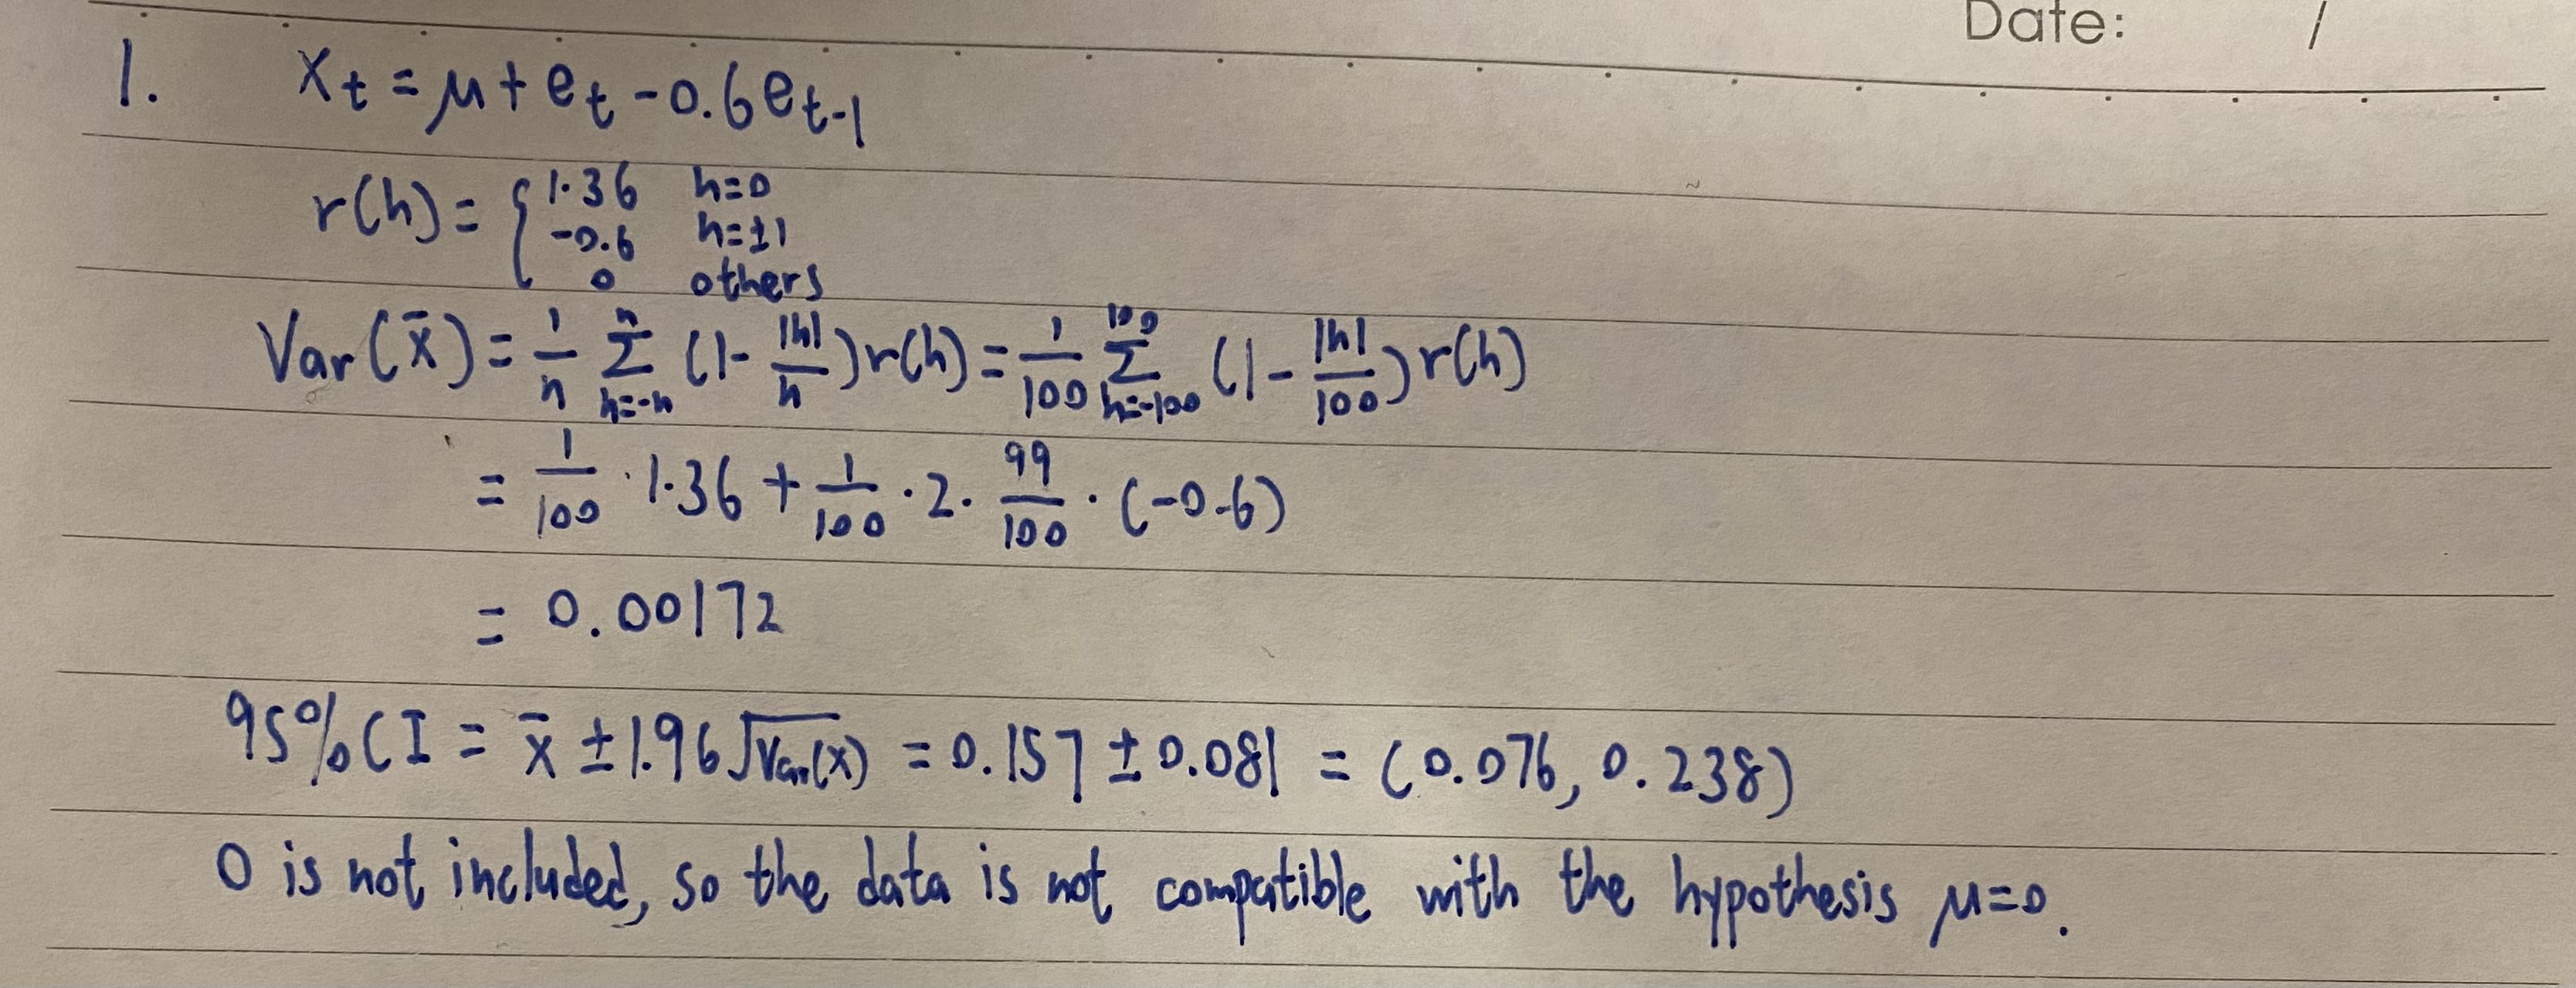 Date: /
1. Xt = μ + et - 0.6et-1
r(h) = { 1.36 h=0
-0.6 h=±1
0 others
Var(x̄) = 1/n Σ_{h=-n}^{n} (1 - |h|/n) r(h) = 1/100 Σ_{h=-100}^{100} (1 - |h|/100) r(h)
= 1/100 · 1.36 + 1/100 · 2 · 99/100 · (-0.6)
= 0.00172
95% CI = x̄ ± 1.96 √Var(x) = 0.157 ± 0.081 = (0.076, 0.238)
0 is not included, so the data is not compatible with the hypothesis μ=0.